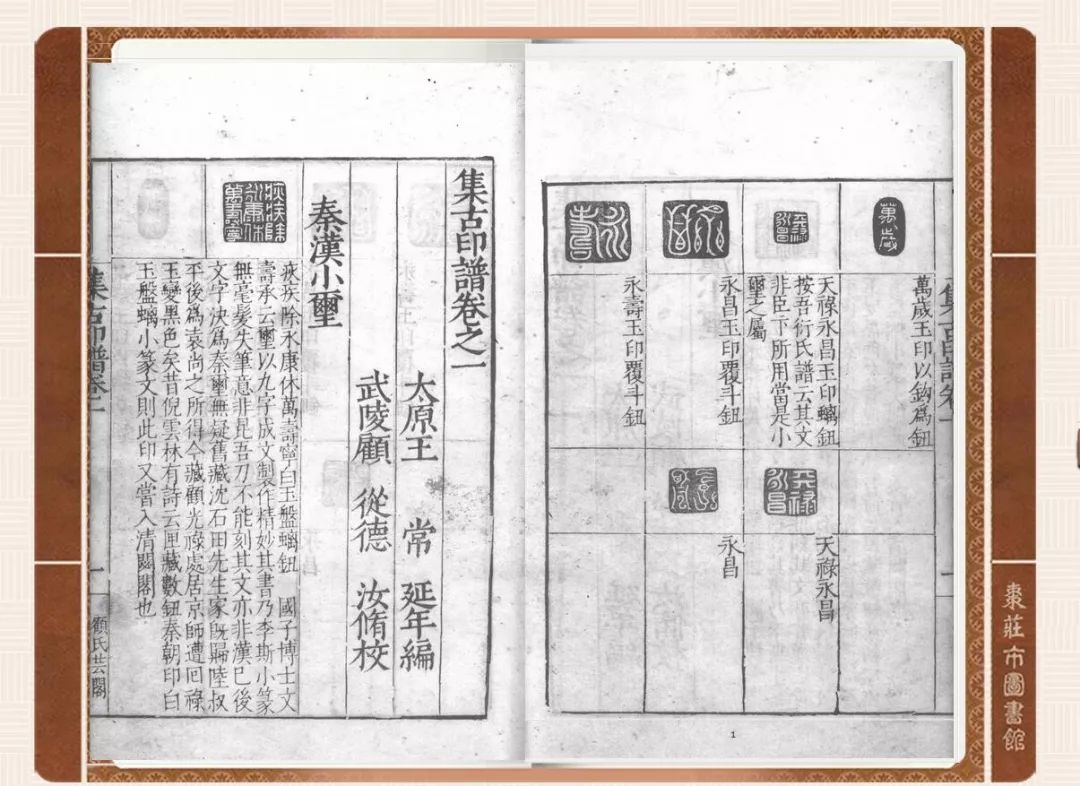 集古印譜卷之一
太原王 常 延年編
武陵顧 從德 汝脩校
秦漢小璽
疢疾除永康休萬壽寧
疢疾除永康休萬壽寧白玉盤螭鈕 國子博士文
壽承云璽以九字成文製作精妙其書乃李斯小篆
無毫髮失筆意非昆吾刀不能刻其文亦非漢已後
文字決爲秦璽無疑舊藏沈石田先生家旣歸陸叔
平後爲袁尚之所得今藏顧光祿處居京師遭回祿
玉變黑色矣昔倪雲林有詩云匣藏數鈕秦朝印白
玉盤螭小篆文則此印又當入清閟閣也
集古印譜卷一
一
顧氏芸閣
集古印譜卷一
一
萬歲
萬歲玉印以鈎爲鈕
天祿永昌
天祿永昌玉印螭鈕
按吾衍氏譜云其文
非臣下所用當是小
璽之屬
天祿永昌
天祿永昌
永昌
永昌玉印覆斗鈕
永昌
永壽
永壽玉印覆斗鈕
1
棗莊市圖書館